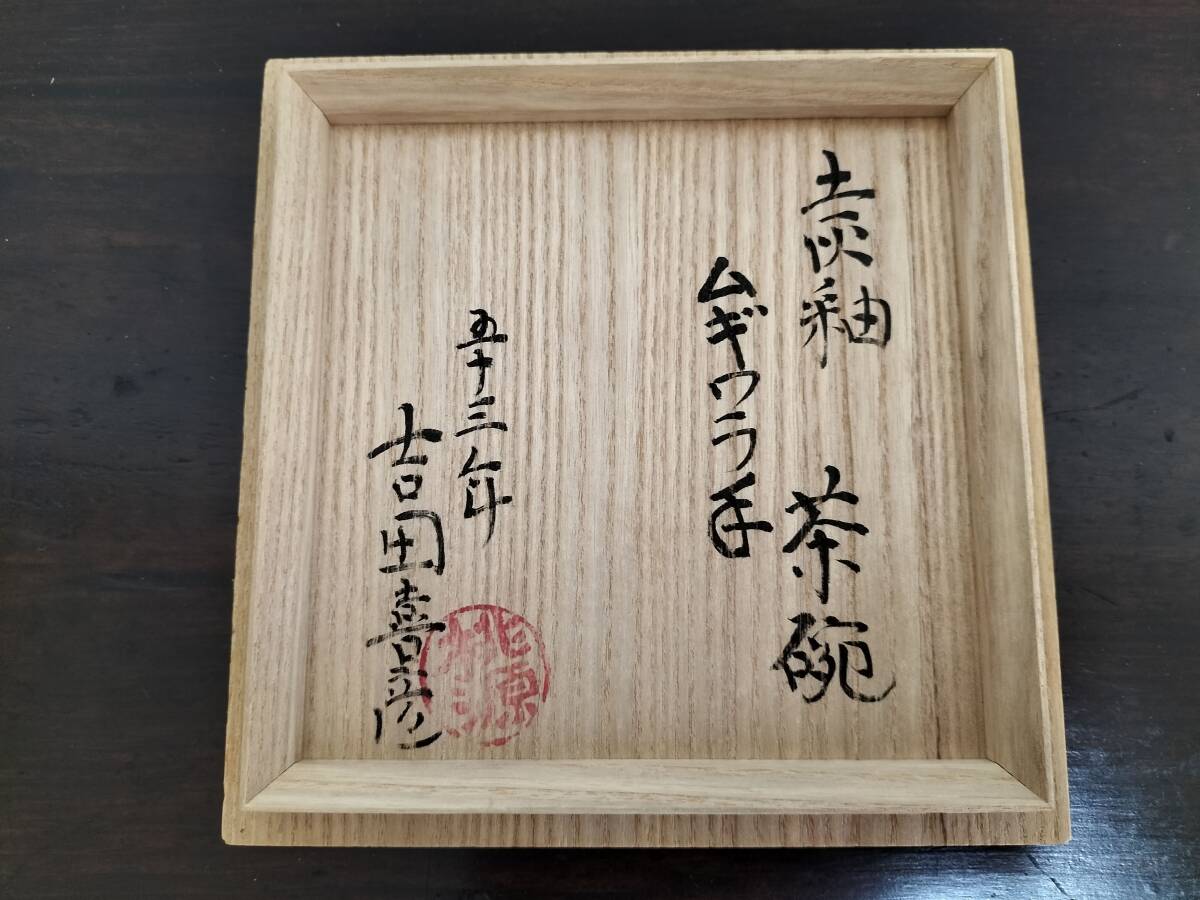 土灰釉 茶碗
ムギワラ手
五十三年
吉田喜彦